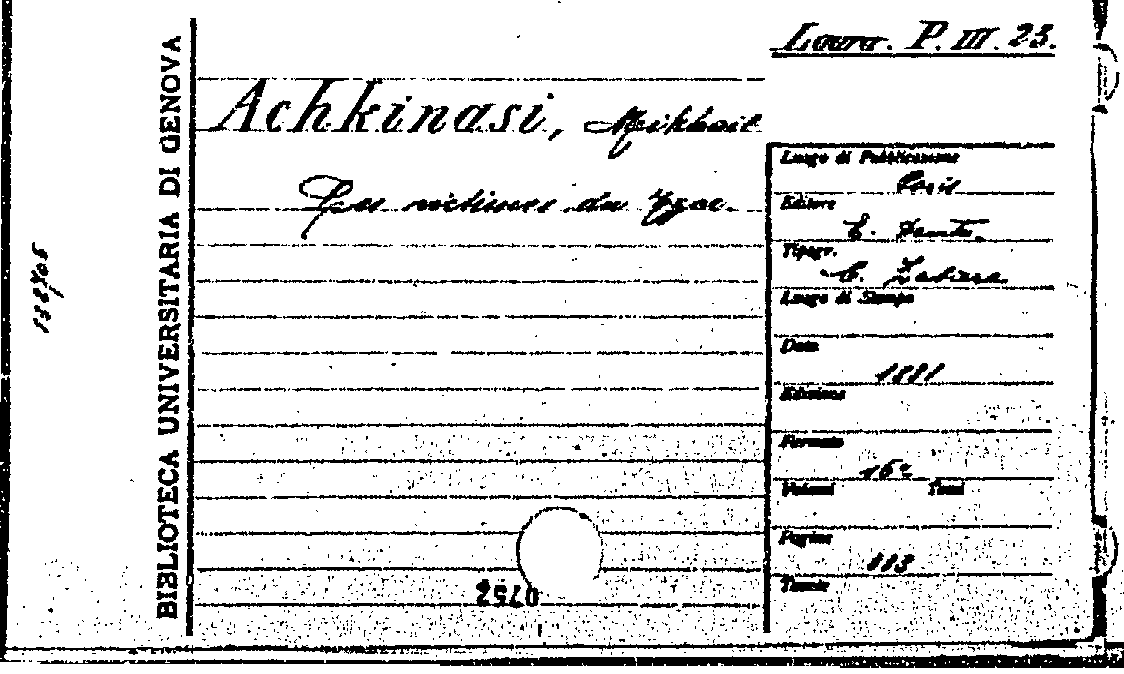 Laura. P. III. 23.
Achkinasi, Mikhail
Les victimes du Tzar.
BIBLIOTECA UNIVERSITARIA DI GENOVA
138705
Luogo di Pubblicazione
Paris
Editore
E. Dentu.
Tipogr.
Luogo di Stampa
Data
1881
Edizione
Formato
16°
Volumi Tomi
Pagine
113
Tavole
0752